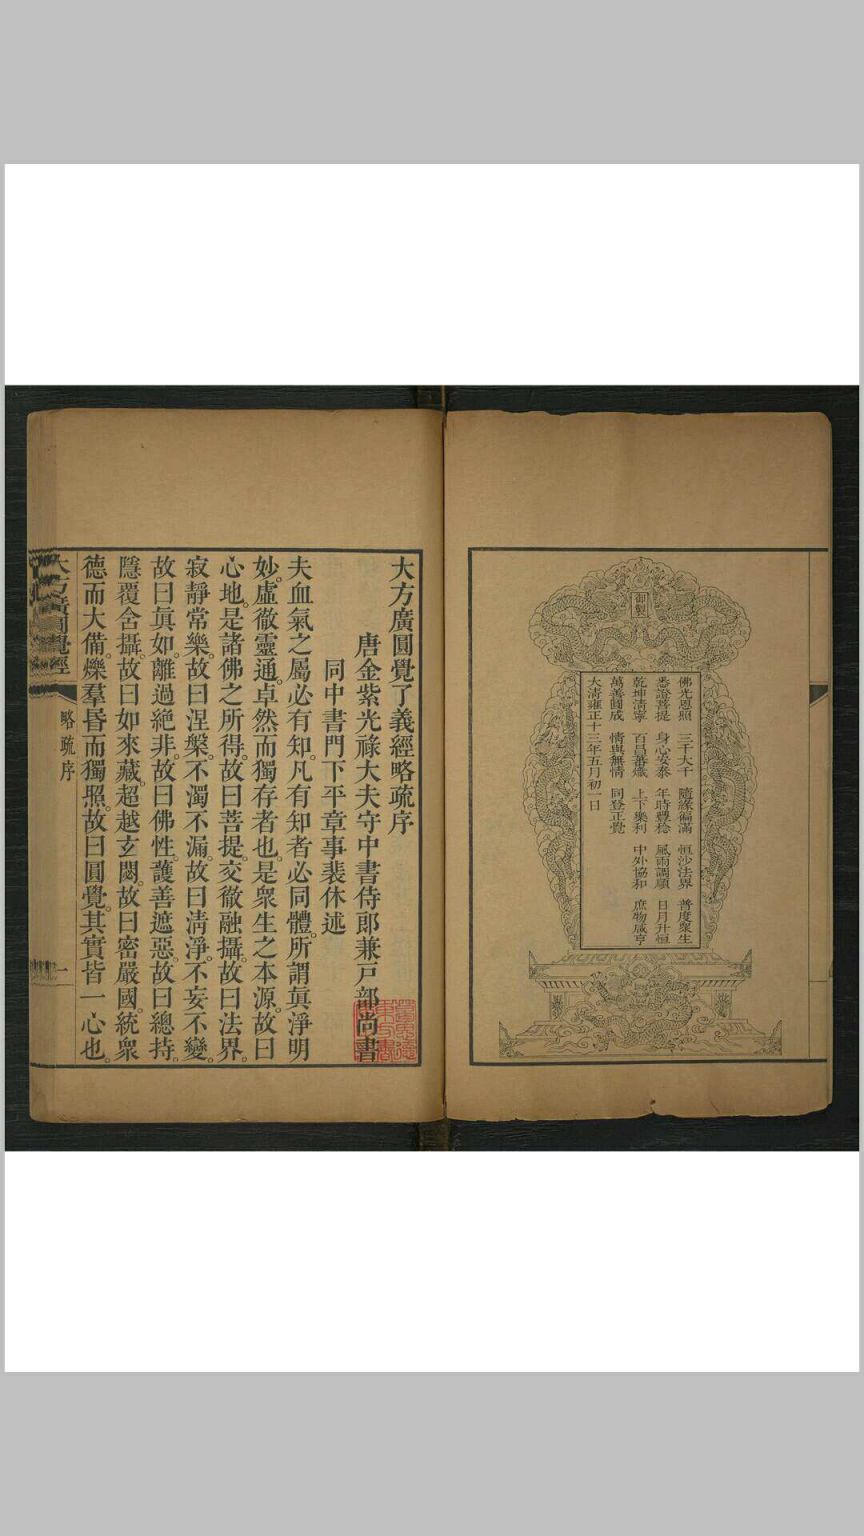 御製
佛光恩照 三千大千 隨緣徧滿 恒沙法界 普度衆生
悉證菩提 身心安泰 年時豐稔 風雨調順 日月升恒
乾坤清寧 百昌蕃熾 上下樂利 中外協和 庶物咸亨
萬善圓成 情與無情 同登正覺
大清雍正十三年五月初一日
大方廣圓覺了義經略疏序
唐金紫光祿大夫守中書侍郎兼戸部尚書
同中書門下平章事裴休述
夫血氣之屬必有知。凡有知者必同體。所謂眞淨明
妙。虛徹靈通。卓然而獨存者也。是衆生之本源。故曰
心地。是諸佛之所得。故曰菩提。交徹融攝。故曰法界。
寂靜常樂。故曰涅槃。不濁不漏。故曰清淨。不妄不變。
故曰眞如。離過絕非。故曰佛性。護善遮惡。故曰總持。
隱覆含攝。故曰如來藏。超越玄閟。故曰密嚴國。統衆
德而大備。爍羣昏而獨照。故曰圓覺。其實皆一心也。
大方廣圓覺經
略疏序
一